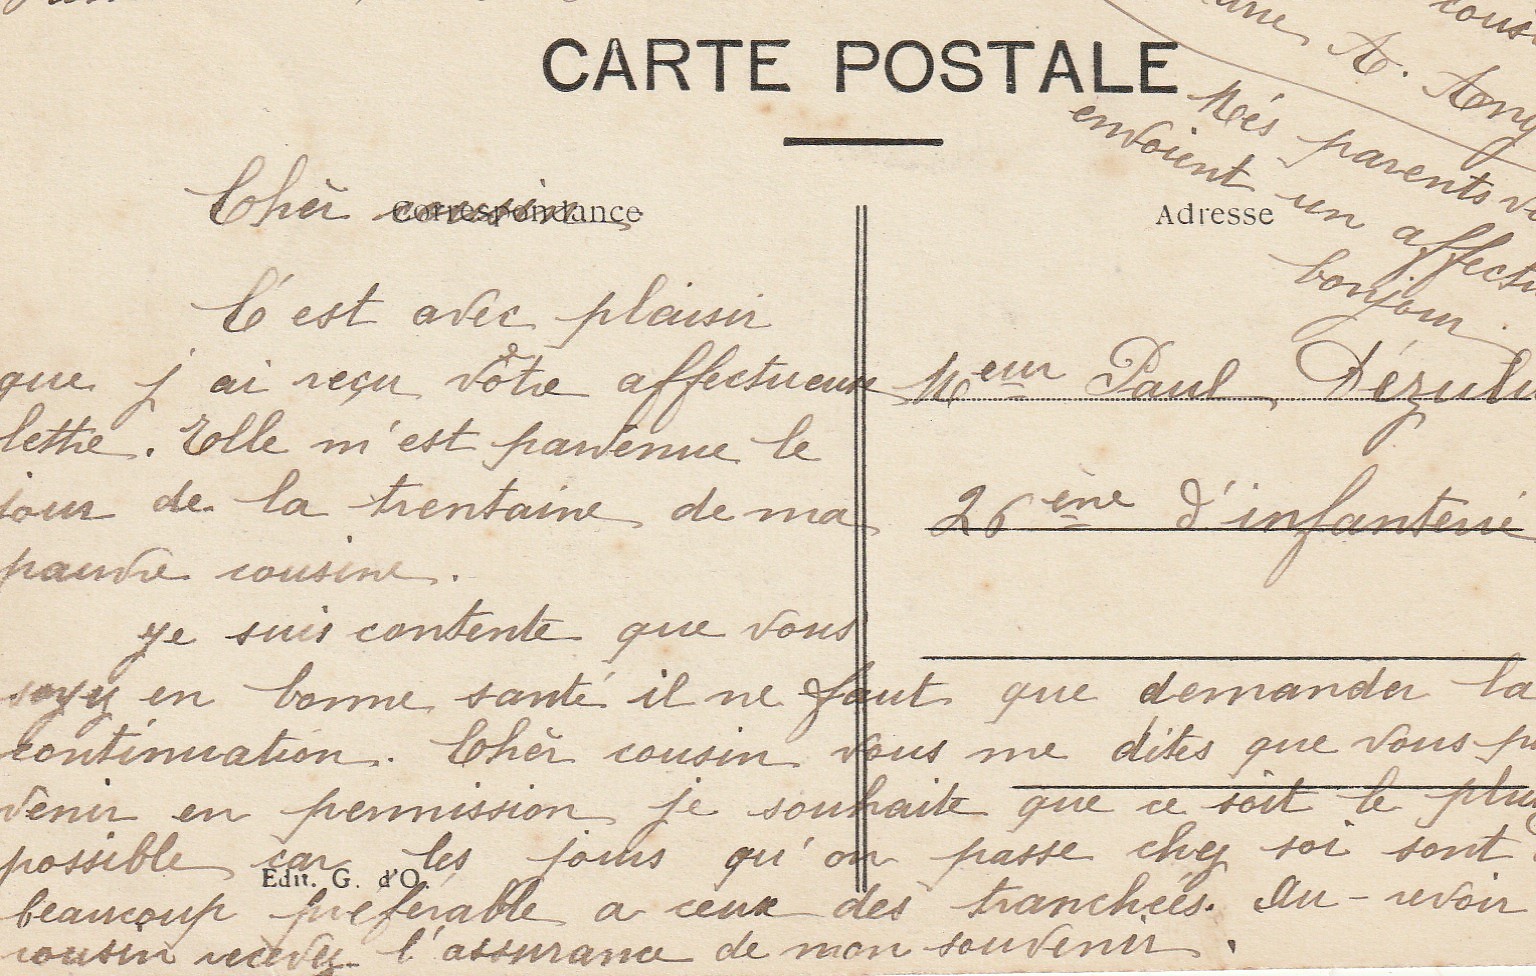 CARTE POSTALE
Correspondance
Adresse
Chèr cousin
C'est avec plaisir
que j'ai reçu vôtre affectueuse
lettre. Elle m'est parvenue le
jour de la trentaine de ma
pauvre cousine.
Je suis contente que vous
soyez en bonne santé il ne faut que demander la
continuation. Chèr cousin vous me dites que vous
venir en permission je souhaite que ce soit le plus
possible car les jours qu'on passe chez soi sont
beaucoup préférable a ceux des tranchées. Au-revoir
cousin recevez l'assurance de mon souvenir.
Edit. G. d'O.
Meur Paul
26ène d'infanterie
cous
A. Ang
Més parents
envoient un affectu
bonjour.